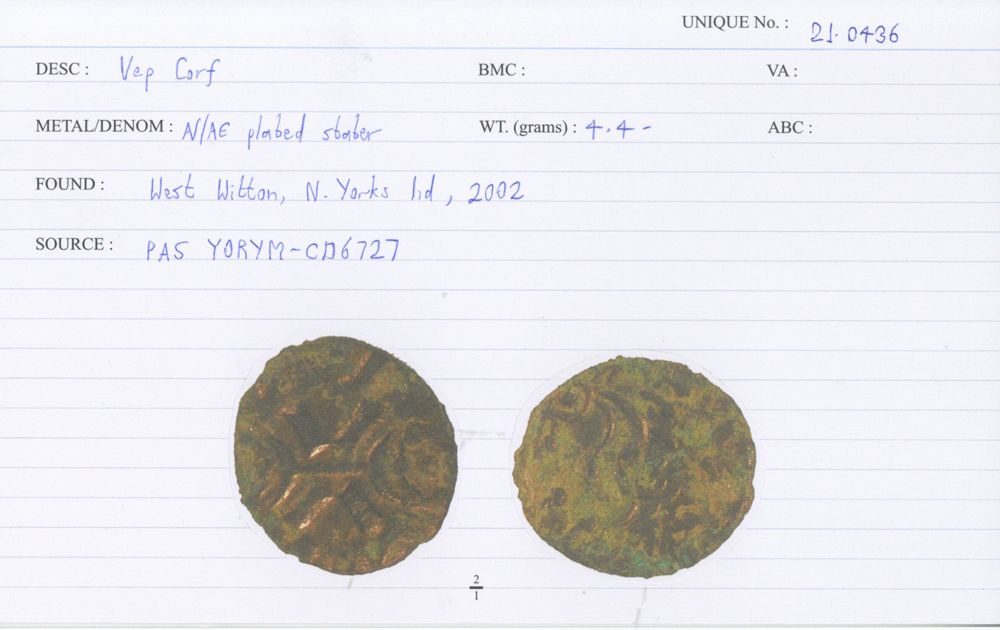 UNIQUE No. : 21.0436
DESC : Vep Corf BMC : VA :
METAL/DENOM : N/AE plated stater WT. (grams) : 4.4 - ABC :
FOUND : West Witton, N. Yorks hd, 2002
SOURCE : PAS YORYM-CD6727
2
1